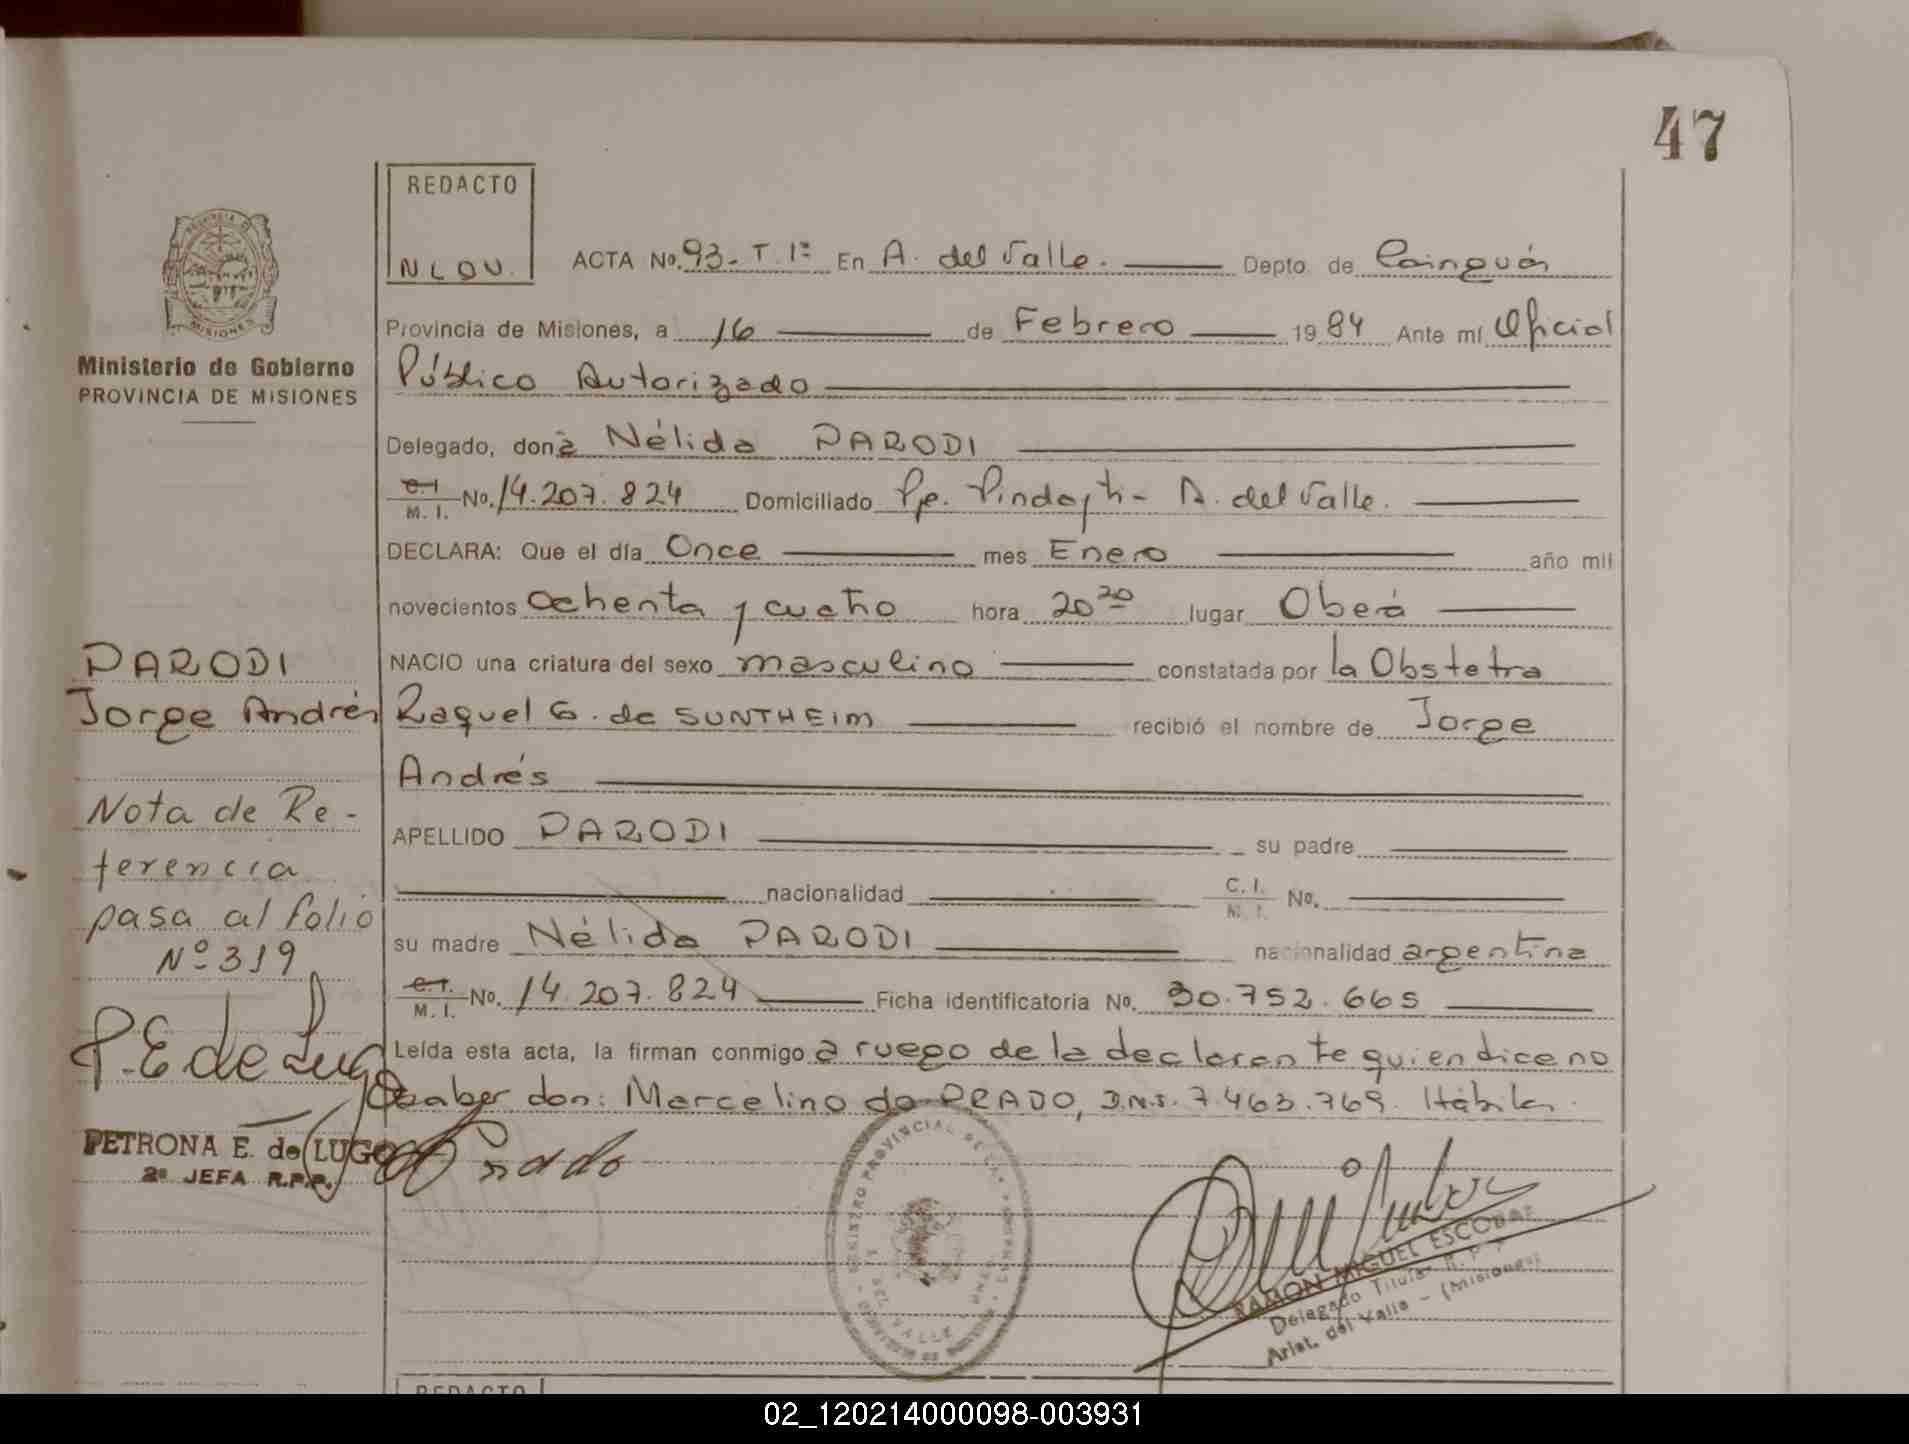 47
REDACTO
ACTA No. 93 - T. 1º En A. del Valle. Depto. de Cainguás
Provincia de Misiones, a 16 de Febrero 1984 Ante mí Oficial
Ministerio de Gobierno
PROVINCIA DE MISIONES
Público Autorizado
Delegado, doña Nélida PARODI
C.I. M. I. No. 14.207.824 Domiciliado Pje. Pindayti - A. del Valle.
DECLARA: Que el día Once mes Enero año mil
novecientos ochenta y cuatro hora 20 20 lugar Oberá
NACIO una criatura del sexo masculino constatada por la Obstetra
Raquel G. de SUNTHEIM recibió el nombre de Jorge
Andrés
APELLIDO PARODI su padre
nacionalidad C. I. M. I. No.
su madre Nélida PARODI nacionalidad argentina
C.I. M. I. No. 14.207.824 Ficha identificatoria No. 30.752.665
Leída esta acta, la firman conmigo a ruego de la declarante quien dice no
saber don: Marcelino do PRADO, D.N.I. 7.463.769. Hábiles.
PARODI
Jorge Andrés
Nota de Re-
ferencia
pasa al folio
Nº 319
P. E de Lugo
PETRONA E. de LUGO
2ª JEFA R.P.P.
Prado
REGISTRO PROVINCIAL DE LAS PERSONAS
DEL VALLE
RAMON MIGUEL ESCOBAR
Delegado Titular R. P. P.
Arist. del Valle - (Misiones)
REDACTO
02_120214000098-003931